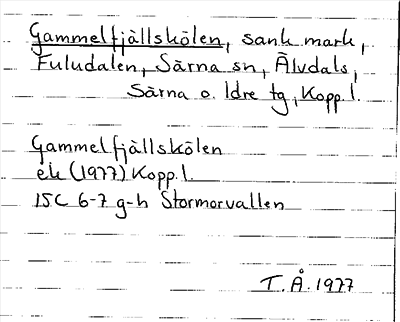 Gammelfjällskölen, sank mark,
Fuludalen, Särna sn, Älvdals,
Särna o. Idre tg, Kopp. l.
Gammelfjällskölen
ek (1977) Kopp. l.
15C 6-7 g-h Stormorvallen
T.Å. 1977